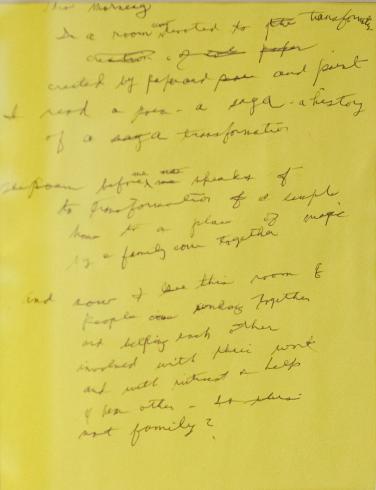 This Morning
In a room devoted to the transformation
creation of
created by paper and pen and print
I read a poem - a saga - a history
of a saga transformation
the poem before me speaks of
to transformation of a simple
home to a place of magic
by a family come together
and now I see this room of
people working together
and helping each other
involved with their work
and with interest & help
of  other - Is this
not family?